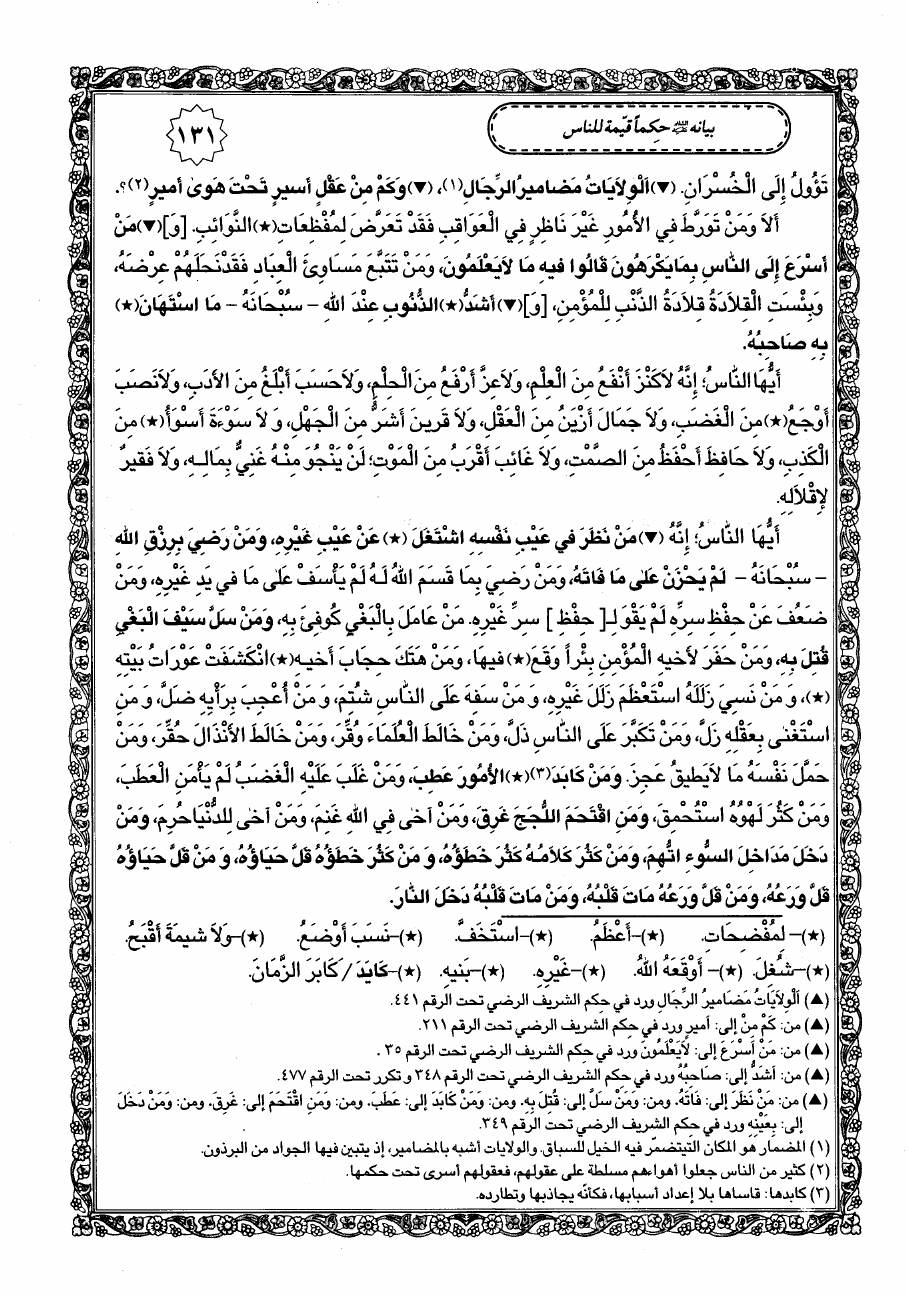 بيانه عليه السلام حكماً قيّمة للناس
١٣١
تَؤُولُ إِلَى الْخُسْرَانِ. (▼) اَلْوِلاَيَاتُ مَضَاميرُ الرِّجَالِ(١)، (▼) وَكَمْ مِنْ عَقْلٍ أَسيرٍ تَحْتَ هَوىٰ أَميرٍ(٢)؟.
أَلاَ وَمَنْ تَوَرَّطَ فِي الأُمُورِ غَيْرَ نَاظِرٍ فِي الْعَوَاقِبِ فَقَدْ تَعَرَّضَ لِمُفْظِعَاتِ(★) النَّوَائِبِ. [وَ](▼) مَنْ
أَسْرَعَ إِلَى النَّاسِ بِمَا يَكْرَهُونَ قَالُوا فيهِ مَا لاَ يَعْلَمُونَ، وَمَنْ تَتَبَّعَ مَسَاوِئَ الْعِبَادِ فَقَدْ نَحَلَهُمْ عِرْضَهُ،
وَبِئْسَتِ الْقِلاَدَةُ قِلاَدَةُ الذَّنْبِ لِلْمُؤْمِنِ، [وَ](▼) أَشَدُّ(★) الذُّنُوبِ عِنْدَ اللهِ – سُبْحَانَهُ – مَا اسْتَهَانَ(★)
بِهِ صَاحِبُهُ.
أَيُّهَا النَّاسُ؛ إِنَّهُ لاَ كَنْزَ أَنْفَعُ مِنَ الْعِلْمِ، وَلاَ عِزَّ أَرْفَعُ مِنَ الْحِلْمِ، وَلاَ حَسَبَ أَبْلَغُ مِنَ الأَدَبِ، وَلاَ نَصَبَ
أَوْجَعُ(★) مِنَ الْغَضَبِ، وَلاَ جَمَالَ أَزْيَنُ مِنَ الْعَقْلِ، وَلاَ قَرينَ أَشَرُّ مِنَ الْجَهْلِ، وَ لاَ سَوْءَةَ أَسْوَأُ(★) مِنَ
الْكَذِبِ، وَلاَ حَافِظَ أَحْفَظُ مِنَ الصَّمْتِ، وَلاَ غَائِبَ أَقْرَبُ مِنَ الْمَوْتِ؛ لَنْ يَنْجُوَ مِنْهُ غَنِيٌّ بِمَالِهِ، وَلاَ فَقيرٌ
لإِقْلاَلِهِ.
أَيُّهَا النَّاسُ؛ إِنَّهُ (▼) مَنْ نَظَرَ في عَيْبِ نَفْسِهِ اشْتَغَلَ (★) عَنْ عَيْبِ غَيْرِهِ، وَمَنْ رَضِيَ بِرِزْقِ اللهِ
– سُبْحَانَهُ – لَمْ يَحْزَنْ عَلىٰ مَا فَاتَهُ، وَمَنْ رَضِيَ بِمَا قَسَمَ اللهُ لَهُ لَمْ يَأْسَفْ عَلىٰ مَا في يَدِ غَيْرِهِ، وَمَنْ
ضَعُفَ عَنْ حِفْظِ سِرِّهِ لَمْ يَقْوَ لِـ[ حِفْظِ ] سِرِّ غَيْرِهِ. مَنْ عَامَلَ بِالْبَغْيِ كُوفِئَ بِهِ، وَمَنْ سَلَّ سَيْفَ الْبَغْيِ
قُتِلَ بِهِ، وَمَنْ حَفَرَ لأَخيهِ الْمُؤْمِنِ بِئْراً وَقَعَ(★) فيهَا، وَمَنْ هَتَكَ حِجَابَ أَخيهِ(★) انْكَشَفَتْ عَوْرَاتُ بَيْتِهِ
(★)، وَ مَنْ نَسِيَ زَلَلَهُ اسْتَعْظَمَ زَلَلَ غَيْرِهِ، وَ مَنْ سَفِهَ عَلَى النَّاسِ شُتِمَ، وَ مَنْ أُعْجِبَ بِرَأْيِهِ ضَلَّ، وَ مَنِ
اسْتَغْنىٰ بِعَقْلِهِ زَلَّ، وَمَنْ تَكَبَّرَ عَلَى النَّاسِ ذَلَّ، وَمَنْ خَالَطَ الْعُلَمَاءَ وُقِّرَ، وَمَنْ خَالَطَ الأَنْذَالَ حُقِّرَ، وَمَنْ
حَمَّلَ نَفْسَهُ مَا لاَ يَطيقُ عَجِزَ. وَمَنْ كَابَدَ(٣)(★) الأُمُورَ عَطِبَ، وَمَنْ غَلَبَ عَلَيْهِ الْغَضَبُ لَمْ يَأْمَنِ الْعَطَبَ،
وَمَنْ كَثُرَ لَهْوُهُ اسْتُحْمِقَ، وَمَنِ اقْتَحَمَ اللُّجَجَ غَرِقَ، وَمَنْ آخىٰ فِي اللهِ غَنِمَ، وَمَنْ آخىٰ لِلدُّنْيَا حُرِمَ، وَمَنْ
دَخَلَ مَدَاخِلَ السُّوءِ اتُّهِمَ، وَمَنْ كَثُرَ كَلاَمُهُ كَثُرَ خَطَؤُهُ، وَ مَنْ كَثُرَ خَطَؤُهُ قَلَّ حَيَاؤُهُ، وَ مَنْ قَلَّ حَيَاؤُهُ
قَلَّ وَرَعُهُ، وَمَنْ قَلَّ وَرَعُهُ مَاتَ قَلْبُهُ، وَمَنْ مَاتَ قَلْبُهُ دَخَلَ النَّارَ.
(★)– لِمُفْضِحَاتِ. (★)–أَعْظَمُ. (★)–اسْتَخَفَّ. (★)–نَسَبَ أَوْضَعُ. (★)–وَلاَ شيمَةَ أَقْبَحُ.
(★)–شُغِلَ. (★)– أَوْقَعَهُ اللهُ. (★)–غَيْرِهِ. (★)–بَنيهِ. (★)–كَايَدَ / كَابَرَ الزَّمَانَ.
(▲) اَلْوِلاَيَاتُ مَضَاميرُ الرِّجَالِ ورد في حكم الشريف الرضي تحت الرقم ٤٤١.
(▲) من: كَمْ مِنْ إلى: أَميرٍ ورد في حكم الشريف الرضي تحت الرقم ٢١١.
(▲) من: مَنْ أَسْرَعَ إلى: لاَ يَعْلَمُونَ ورد في حكم الشريف الرضي تحت الرقم ٣٥ .
(▲) من: أَشَدُّ إلى: صَاحِبُهُ ورد في حكم الشريف الرضي تحت الرقم ٣٤٨ و تكرر تحت الرقم ٤٧٧.
(▲) من: مَنْ نَظَرَ إلى: فَاتَهُ. ومن: وَمَنْ سَلَّ إلى: قُتِلَ بِهِ. ومن: وَمَنْ كَابَدَ إلى: عَطِبَ. ومن: وَمَنِ اقْتَحَمَ إلى: غَرِقَ. ومن: وَمَنْ دَخَلَ
إلى: بِعَيْنِهِ ورد في حكم الشريف الرضي تحت الرقم ٣٤٩.
(١) المضمار هو المكان التيتضمّر فيه الخيل للسباق. والولايات أشبه بالمضامير، إذ يتبين فيها الجواد من البرذون.
(٢) كثير من الناس جعلوا أهواءهم مسلطة على عقولهم، فعقولهم أسرى تحت حكمها.
(٣) كابدها: قاساها بلا إعداد أسبابها، فكأنّه يجاذبها وتطارده.